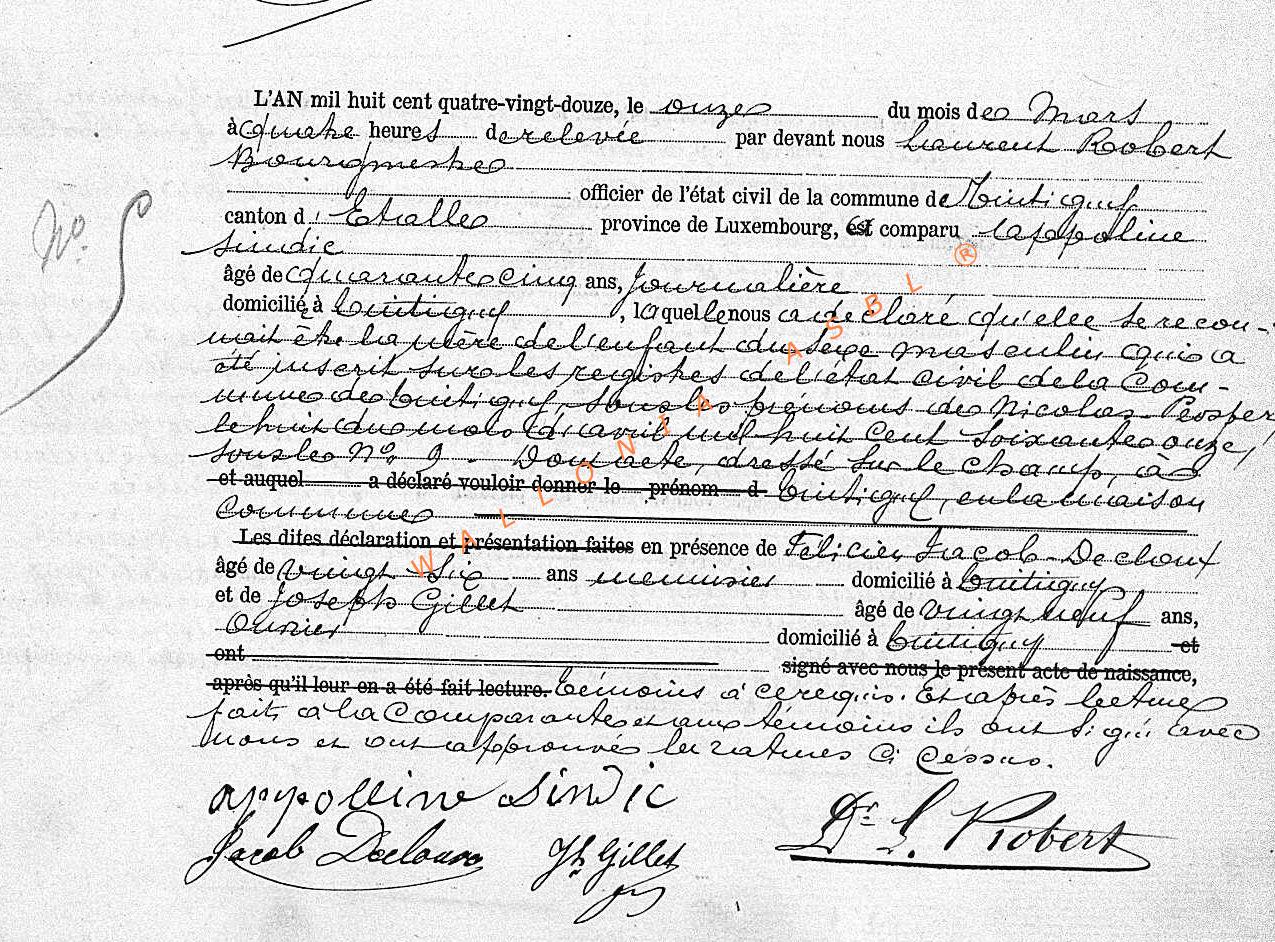 L'AN mil huit cent quatre-vingt-douze, le onze du mois de Mars
à quatre heures de relevée par devant nous Laurent Robert
Bourgmestre
officier de l'état civil de la commune de Tintigny
canton d'Etalle province de Luxembourg, est comparu Appoline
Sindic
âgé de quarante cinq ans, Journalière
domiciliée à Tintigny, laquelle nous a déclaré qu'elle se recon-
nait être la mère de l'enfant du sexe masculin qui a
été inscrit sur les registres de l'état civil de la Com-
mune de Tintigny, sous les prénoms de Nicolas Prosper
le huit du mois d'avril mil huit cent soixante onze,
sous le N° 9. Dont acte, dressé sur le champ, à
et auquel a déclaré vouloir donner le prénom d Tintigny, en la maison
Commune
Les dites déclaration et présentation faites en présence de Félicien Jacob Decloux
âgé de vingt Six ans menuisier domicilié à Tintigny
et de Joseph Gillet âgé de vingt neuf ans,
Ouvrier domicilié à Tintigny et
ont signé avec nous le présent acte de naissance,
après qu'il leur en a été fait lecture. Témoins à ce requis. Et après lecture
faite à la Comparante et aux témoins ils ont signé avec
nous et ont approuvé les ratures ci dessus.
appolline Sindic
Jacob Decloux Jh Gillet Dr L. Robert
N° 5
WALLONIA ASBL ®